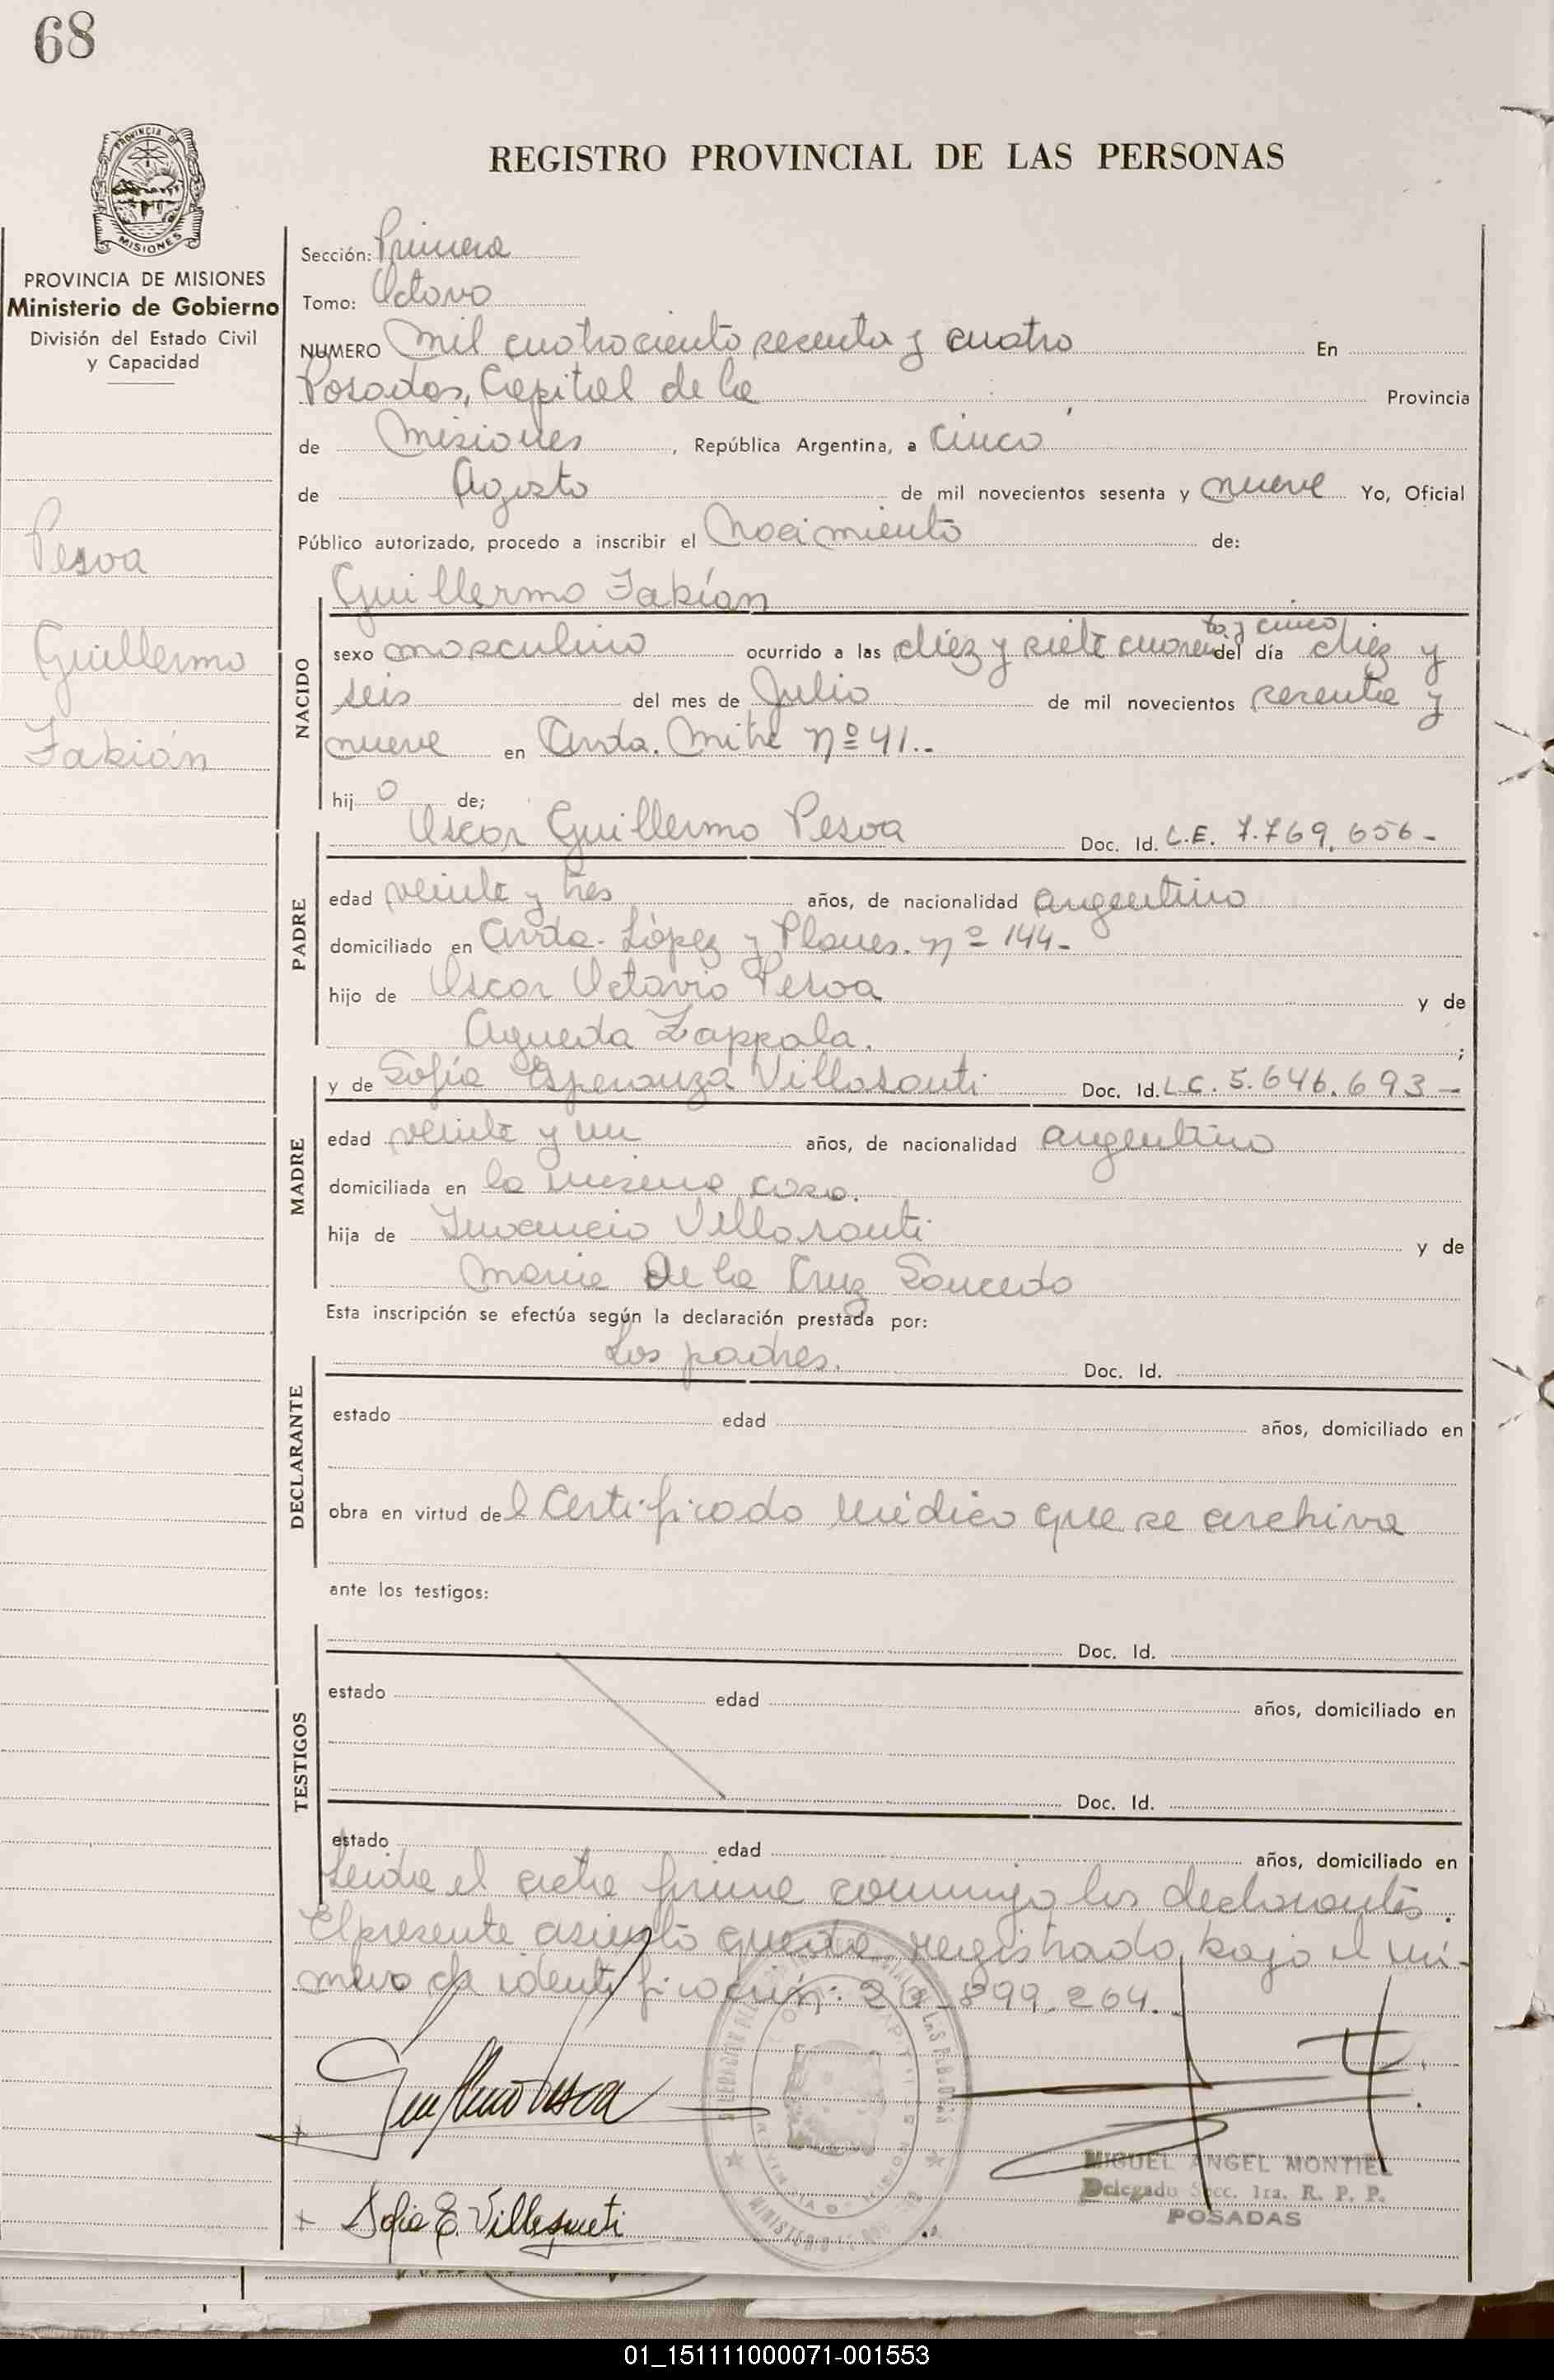 68
PROVINCIA DE
MISIONES
PROVINCIA DE MISIONES
Ministerio de Gobierno
División del Estado Civil
y Capacidad
Pesoa
Guillermo
Fabián
REGISTRO PROVINCIAL DE LAS PERSONAS
Sección: Primera
Tomo: Octavo
NUMERO Mil cuatrociento sesenta y cuatro En
Posadas, Capital de la Provincia
de Misiones, República Argentina, a cinco
de Agosto de mil novecientos sesenta y nueve Yo, Oficial
Público autorizado, procedo a inscribir el Nacimiento de:
Guillermo Fabián
NACIDO
ta y cinco
sexo masculino ocurrido a las diez y siete cuaren del día diez y
seis del mes de Julio de mil novecientos sesenta y
nueve en Avda. Mitre nº 41.-
hijo de;
Oscar Guillermo Pesoa Doc. Id. L.E. 7.769.656-
PADRE
edad veinte y tres años, de nacionalidad argentino
domiciliado en Avda. López y Planes. nº 144-
hijo de Oscar Octavio Pesoa y de
Agueda Zappala. ;
MADRE
y de Sofía Esperanza Villasanti Doc. Id. L.C. 5.646.693-
edad veinte y un años, de nacionalidad argentino
domiciliada en la misma casa.
hija de Inocencio Villasanti y de
Maria De la Cruz Saucedo
Esta inscripción se efectúa según la declaración prestada por:
Los padres. Doc. Id.
DECLARANTE
estado edad años, domiciliado en
obra en virtud del Certificado Médico que se archiva
ante los testigos:
Doc. Id.
TESTIGOS
estado edad años, domiciliado en
Doc. Id.
estado edad años, domiciliado en
Leida el acta firma conmigo los declarantes.
El presente asiento queda registrado bajo el nú-
mero de identificación: 20.899.264.
Guillermo Pesoa
MIGUEL ANGEL MONTIEL
Delegado Secc. 1ra. R. P. P.
POSADAS
Sofia E. Villasanti
01_151111000071-001553